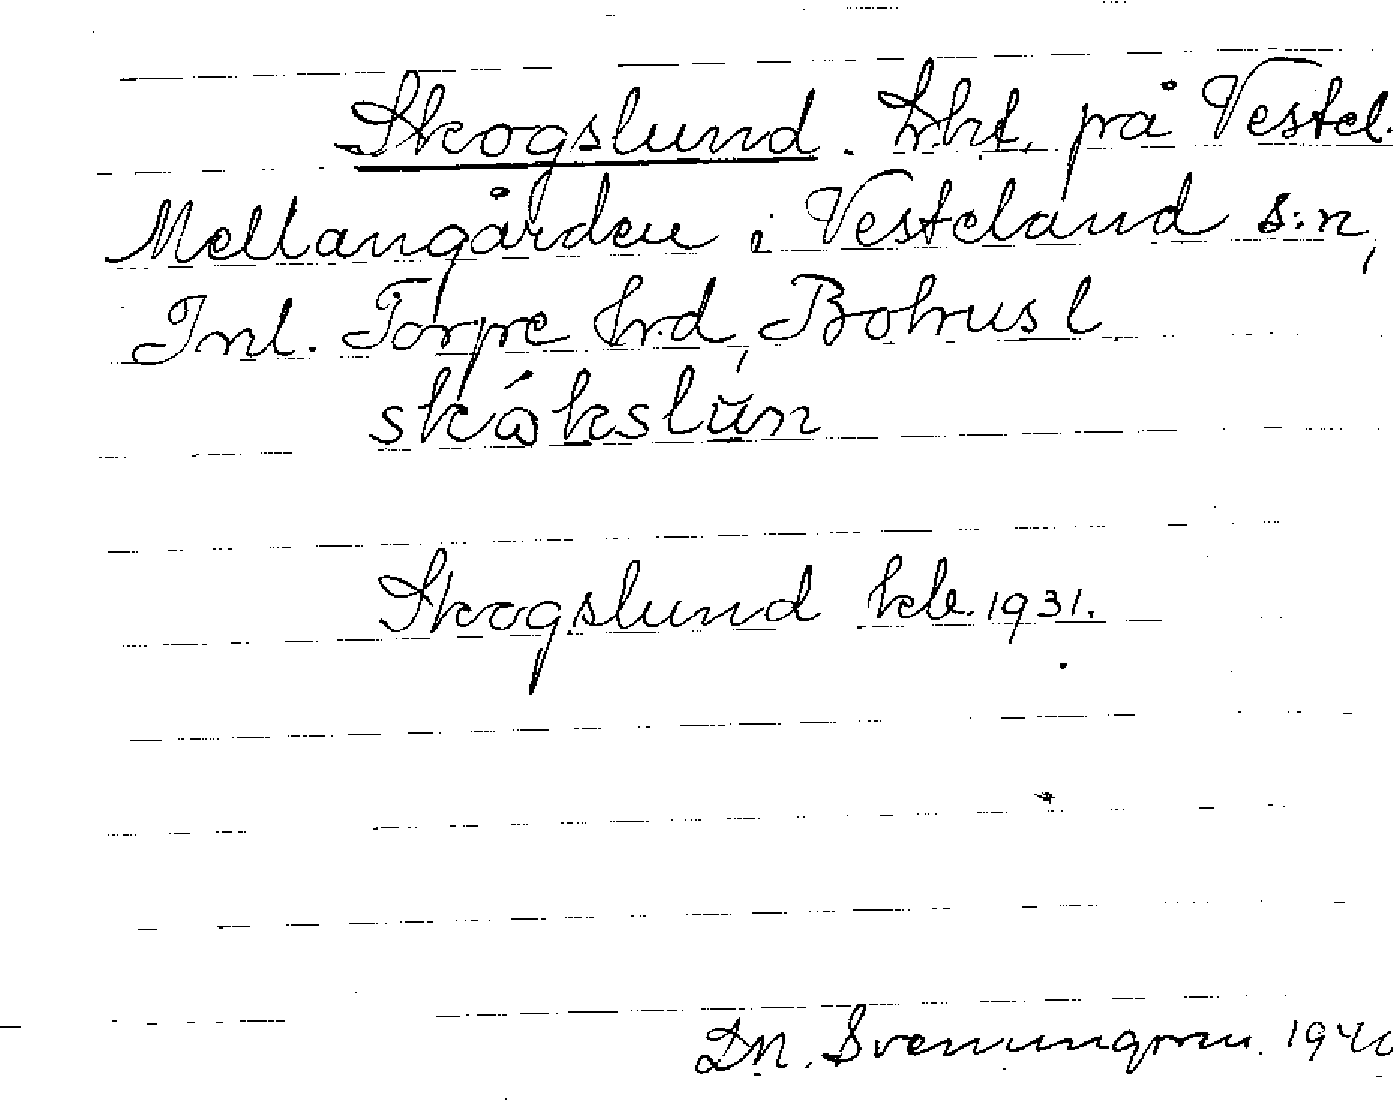 Skogslund. Lht. på Vestel.
Mellangården i Vesteland s:n,
Inl. Torpe hrd, Bohusl
skókslŭn
Skogslund kcle 1931.
D.N. Svenungsson. 1940